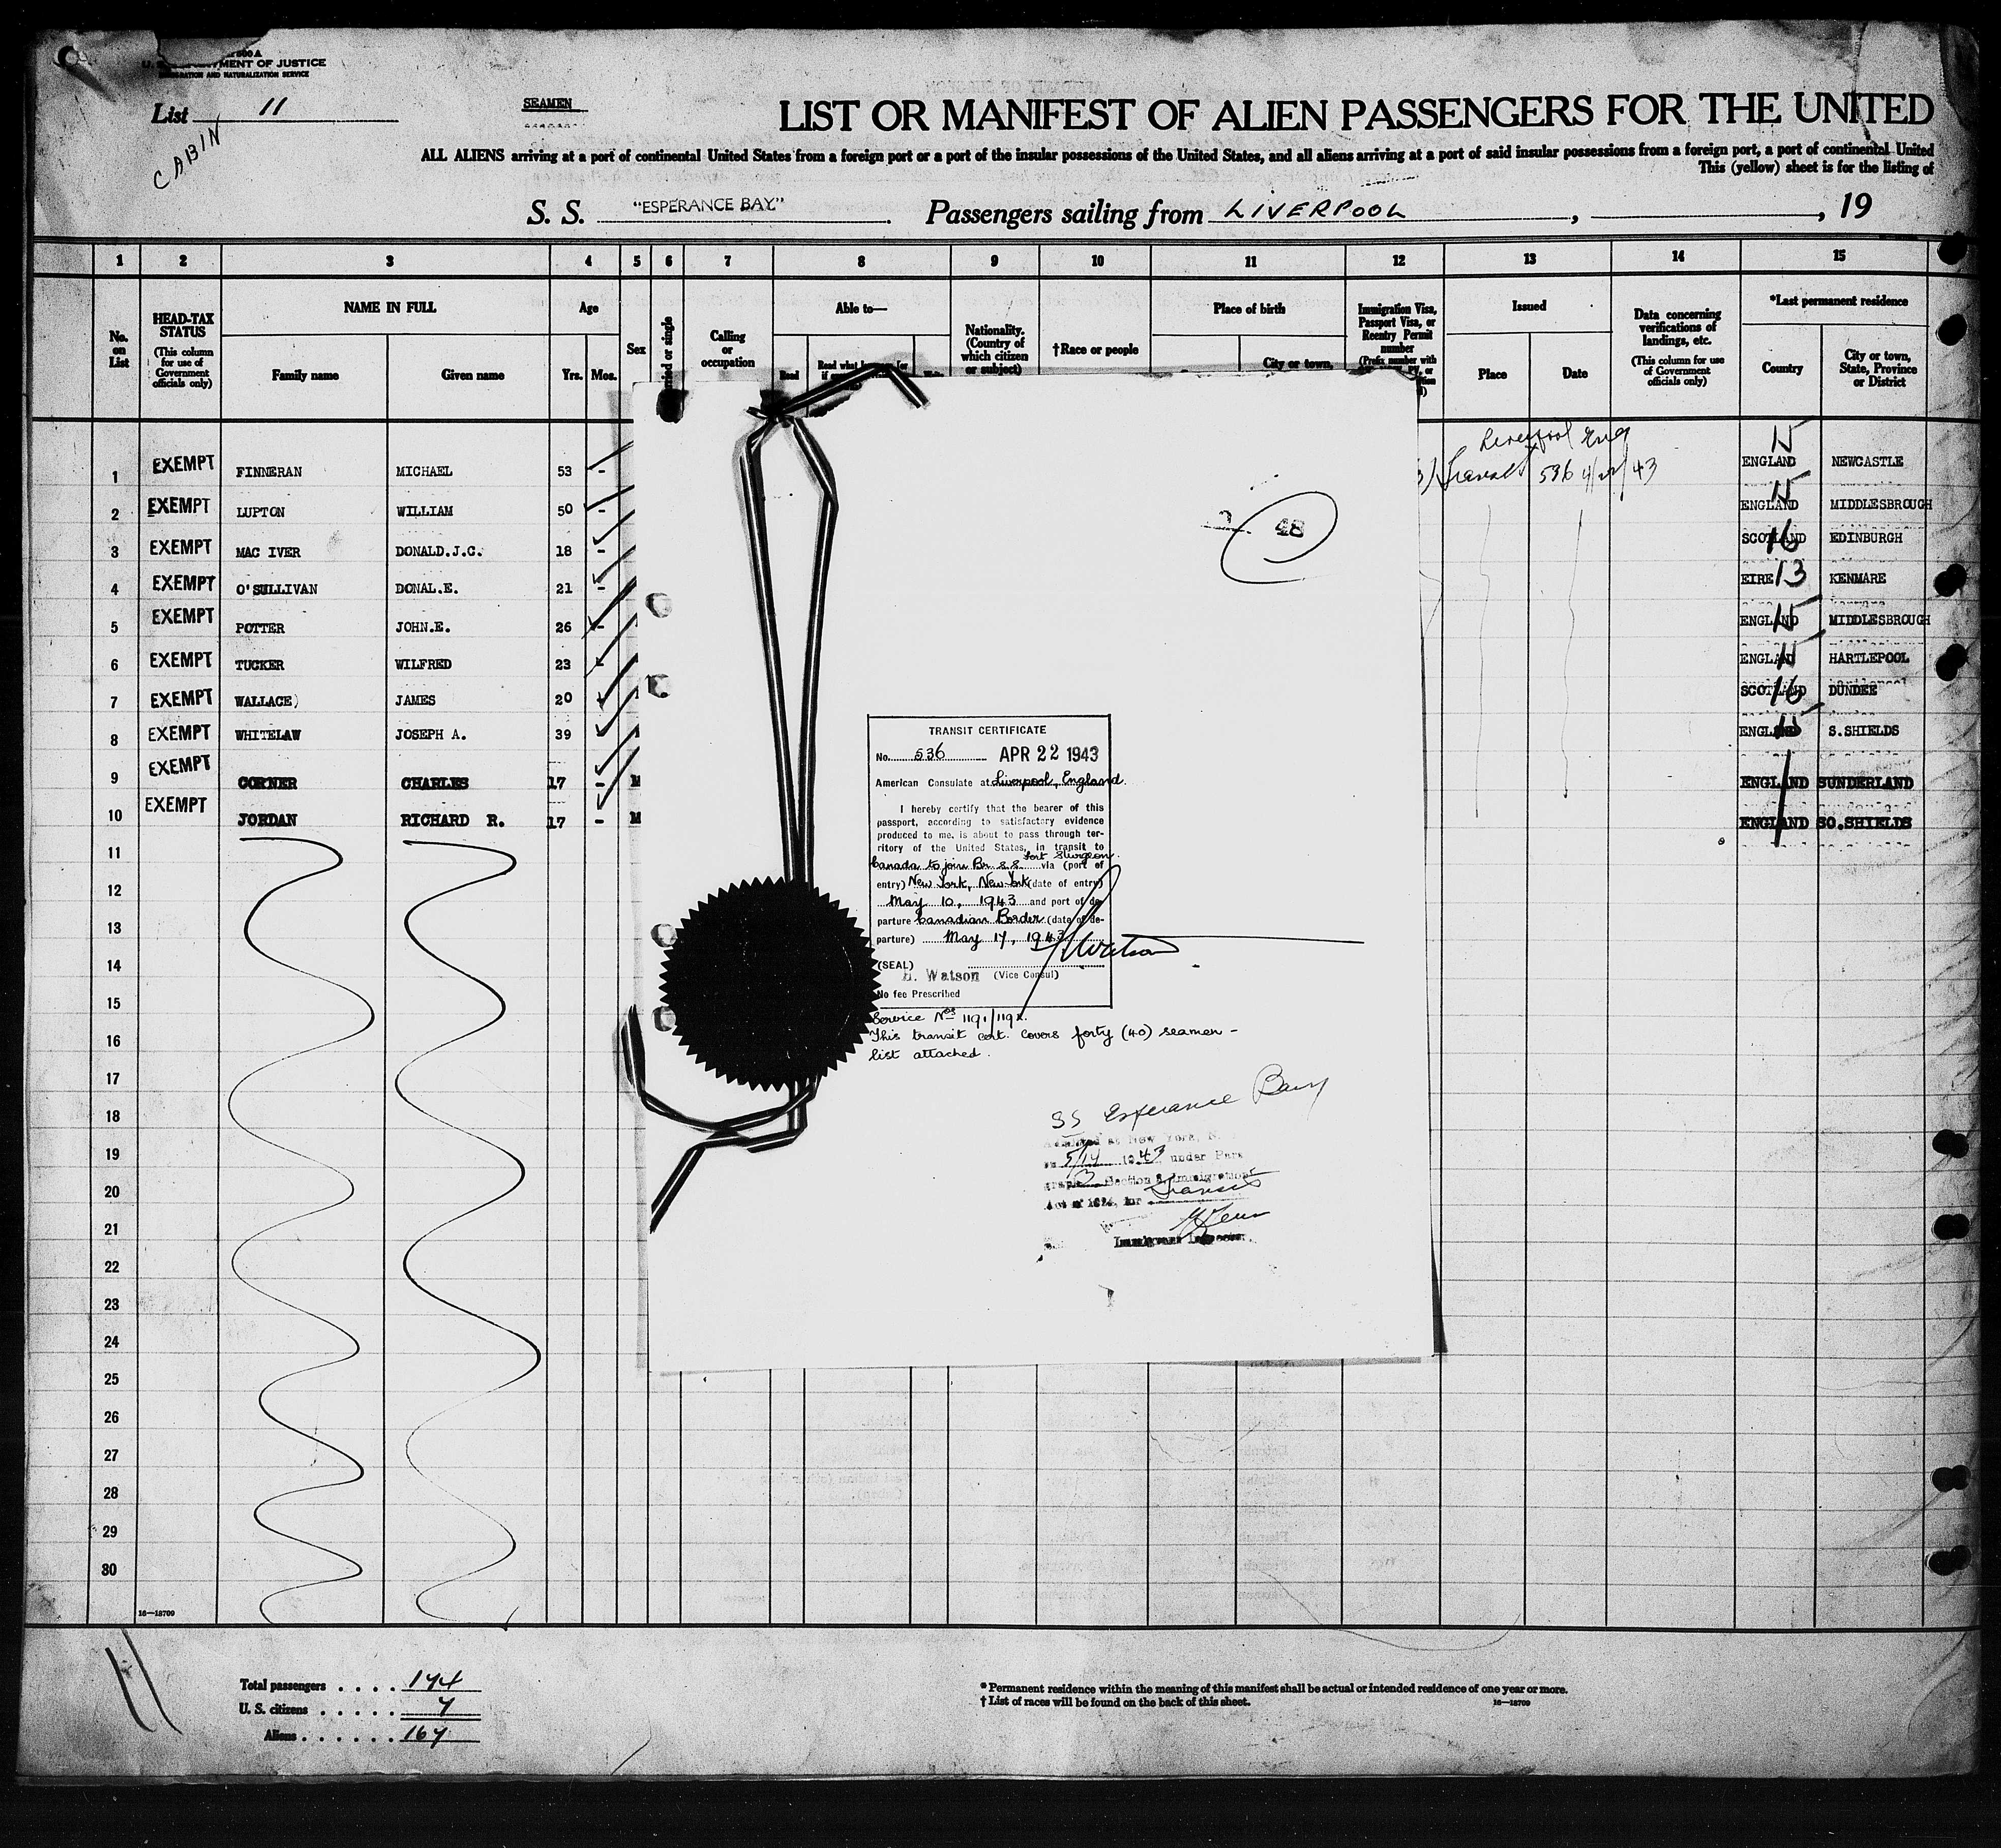 500 A
U. S. DEPARTMENT OF JUSTICE
IMMIGRATION AND NATURALIZATION SERVICE
List 11
CABIN
SEAMEN
LIST OR MANIFEST OF ALIEN PASSENGERS FOR THE UNITED
ALL ALIENS arriving at a port of continental United States from a foreign port or a port of the insular possessions of the United States, and all aliens arriving at a port of said insular possessions from a foreign port, a port of continental United
This (yellow) sheet is for the listing of
S. S. "ESPERANCE BAY" Passengers sailing from LIVERPOOL , , 19
1 2 3 4 5 6 7 8 9 10 11 12 13 14 15
No. on List
HEAD-TAX STATUS
(This column for use of Government officials only)
NAME IN FULL
Family name Given name
Age
Yrs. Mos.
Sex
Married or single
Calling or occupation
Able to—
Read Read what
Nationality. (Country of which citizen or subject)
†Race or people
Place of birth
City or town,
Immigration Visa, Passport Visa, or Reentry Permit number
(Prefix number with
Issued
Place Date
Data concerning verifications of landings, etc.
(This column for use of Government officials only)
*Last permanent residence
Country City or town, State, Province or District
Liverpool Eng
1 EXEMPT FINNERAN MICHAEL 53 - 3) Transit 536 4/22/43 ENGLAND 15 NEWCASTLE
2 EXEMPT LUPTON WILLIAM 50 - ENGLAND 15 MIDDLESBROUGH
3 EXEMPT MAC IVER DONALD.J.C. 18 - SCOTLAND 16 EDINBURGH
4 EXEMPT O'SULLIVAN DONAL.E. 21 - EIRE 13 KENMARE
5 EXEMPT POTTER JOHN.E. 26 - ENGLAND 15 MIDDLESBROUGH
6 EXEMPT TUCKER WILFRED 23 - ENGLAND 15 HARTLEPOOL
7 EXEMPT WALLACE) JAMES 20 - SCOTLAND 16 DUNDEE
8 EXEMPT WHITELAW JOSEPH A. 39 - ENGLAND 15 S.SHIELDS
9 EXEMPT CORNER CHARLES 17 - M ENGLAND SUNDERLAND
10 EXEMPT JORDAN RICHARD R. 17 - M ENGLAND SO.SHIELDS
11
12
13
14
15
16
17
18
19
20
21
22
23
24
25
26
27
28
29
30
16—18709
48
TRANSIT CERTIFICATE
No. 536 APR 22 1943
American Consulate at Liverpool, England.
I hereby certify that the bearer of this
passport, according to satisfactory evidence
produced to me, is about to pass through ter-
ritory of the United States, in transit to
Fort Sturgeon.
Canada to join Br. s.s. via (port of
entry) New York, New York (date of entry)
May 10, 1943 and port of de-
parture Canadian Border (date of de-
parture) May 17, 1943
HWatson
(SEAL)
H. Watson (Vice Consul)
No fee Prescribed
Service Nos 1191/1192.
This transit cert. covers forty (40) seamen -
list attached.
SS Esperance Bay
Admitted at New York, N.
on 5/14 1943 under Para
graph 3 Section 3 Immigration
Act of 1924, for Transit
Immigrant Inspector.
11
Total passengers . . . . 174
U. S. citizens . . . . . 7
Aliens . . . . . . 167
* Permanent residence within the meaning of this manifest shall be actual or intended residence of one year or more.
† List of races will be found on the back of this sheet. 16—18709